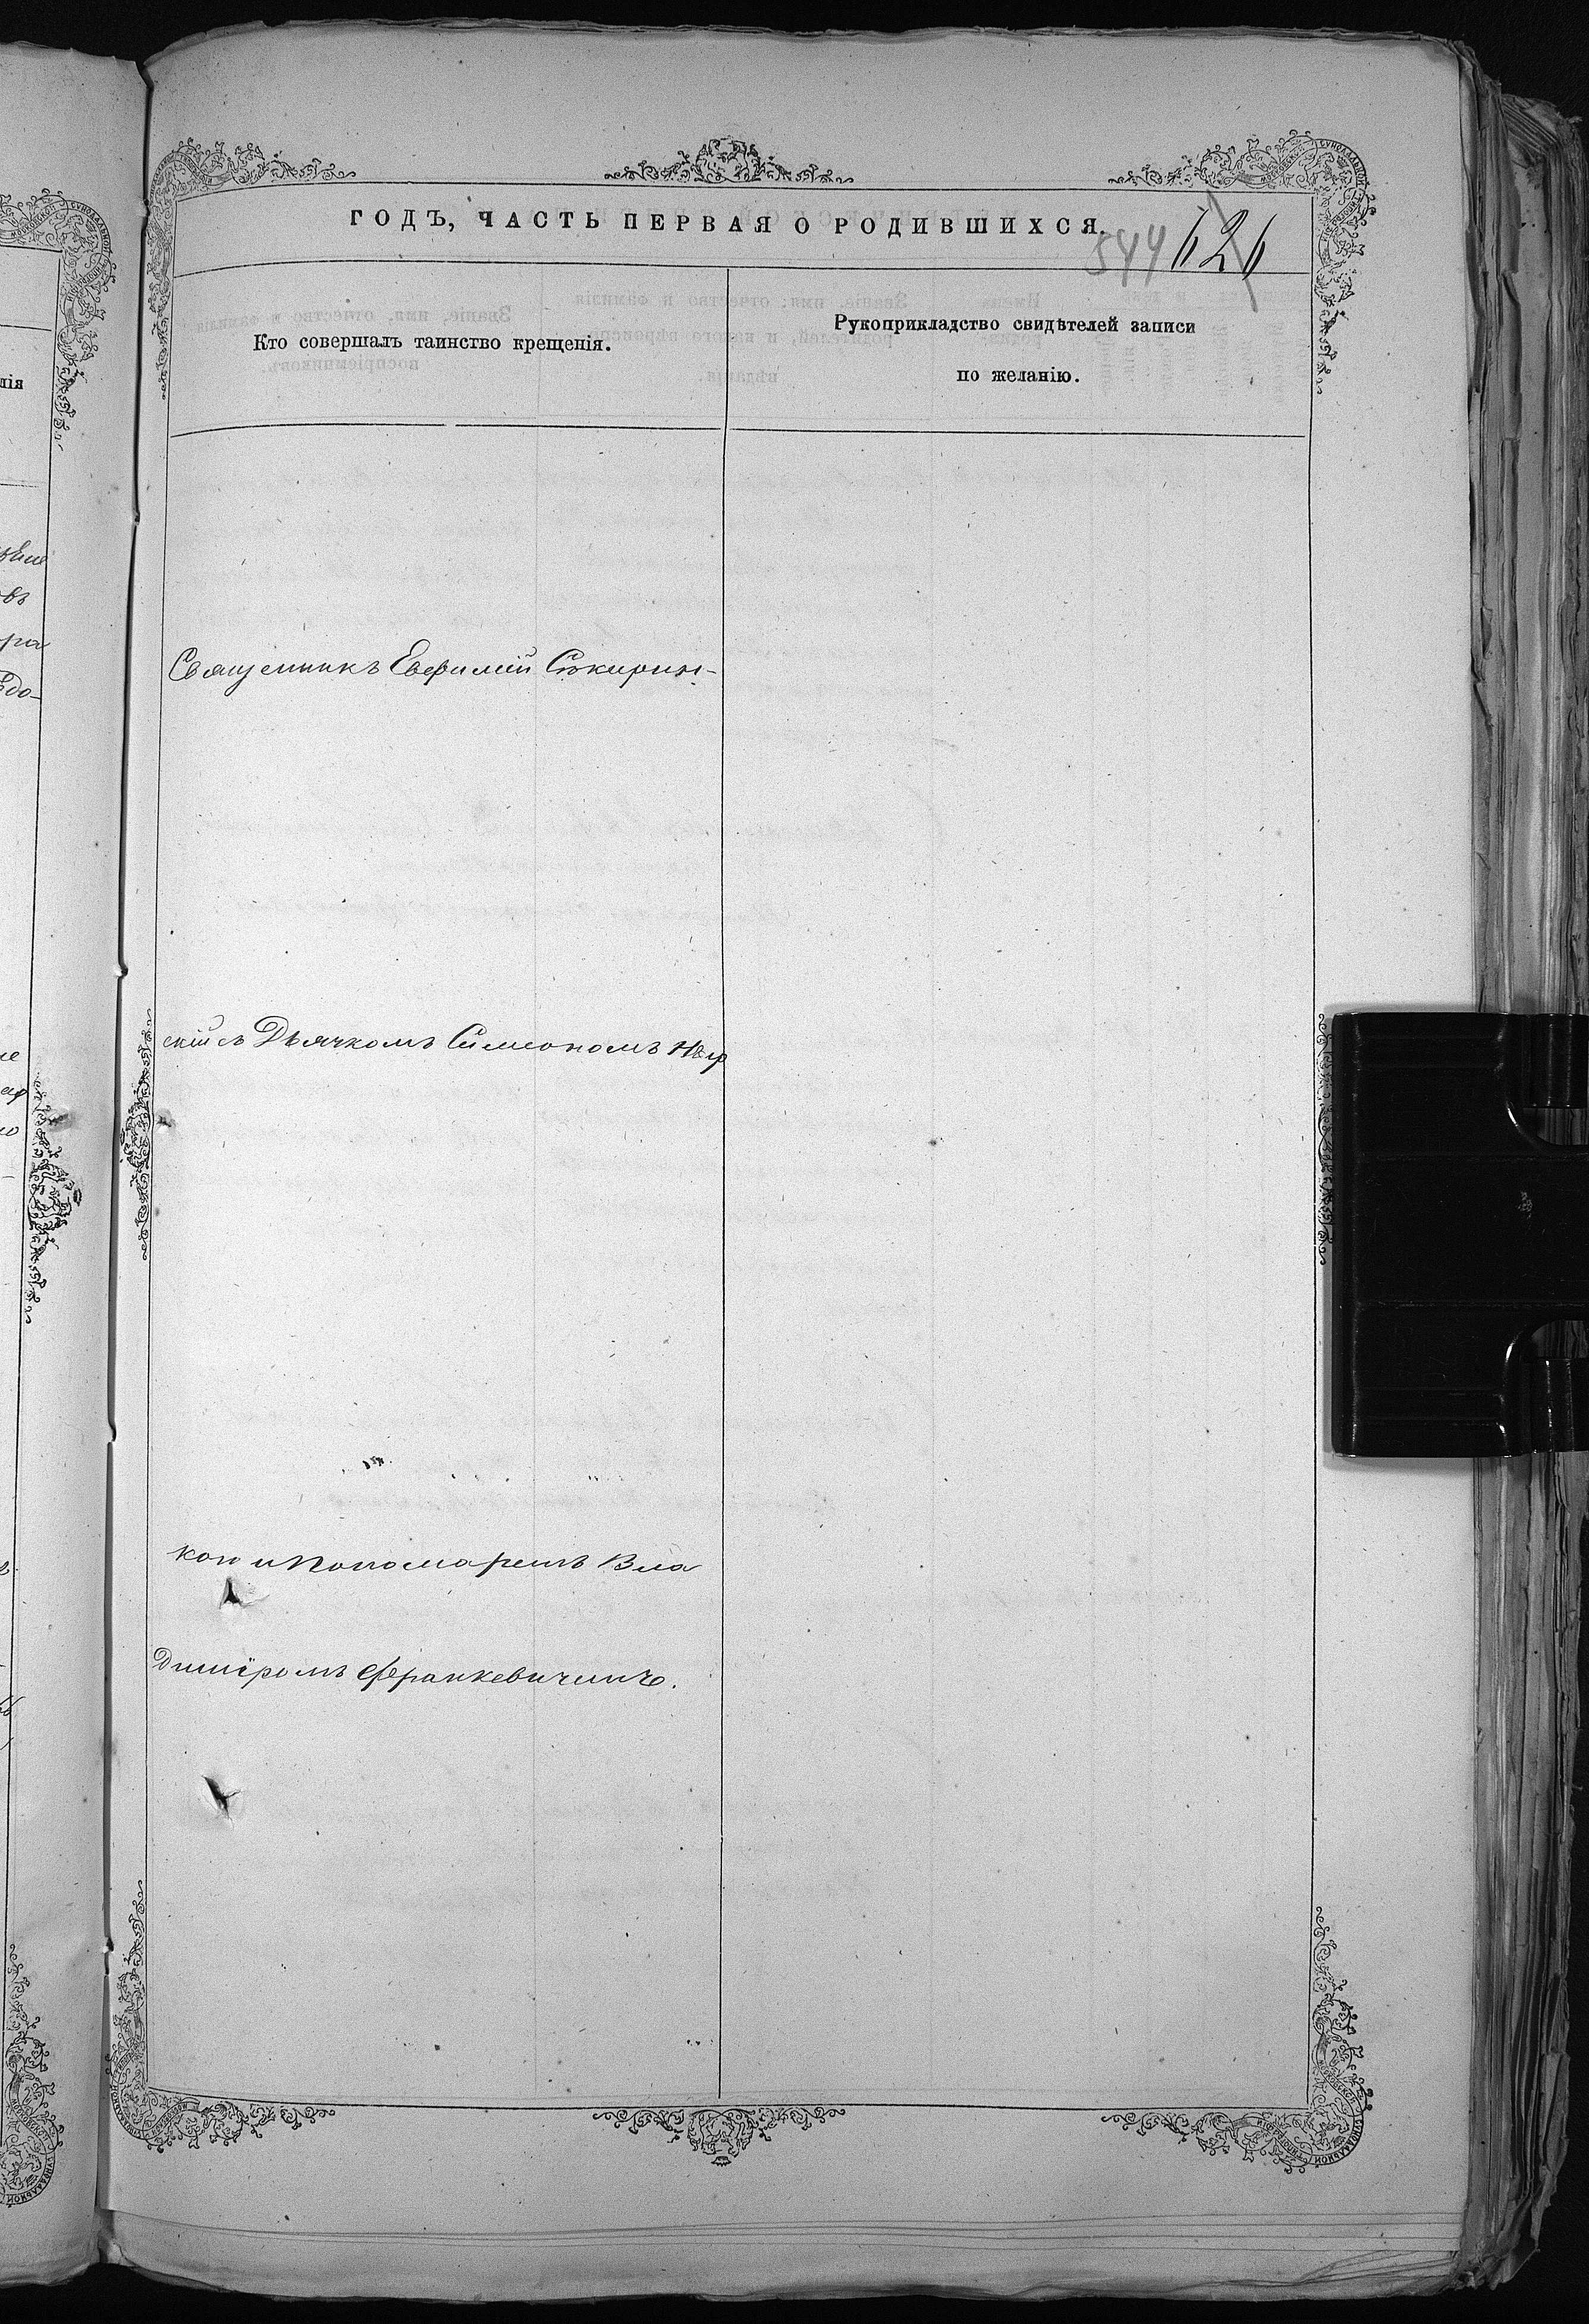 ГОДЪ, ЧАСТЬ ПЕРВАЯ О РОДИВШИХСЯ.
544 626
Кто совершалъ таинство крещенія.
Рукоприкладство свидѣтелей записи
по желанію.
Священникъ Евфимій Сѣкирин-
скій съ Дьячкомъ Симеономъ
кою и Пономаремъ Вла
диміромъ Франкевичемъ.